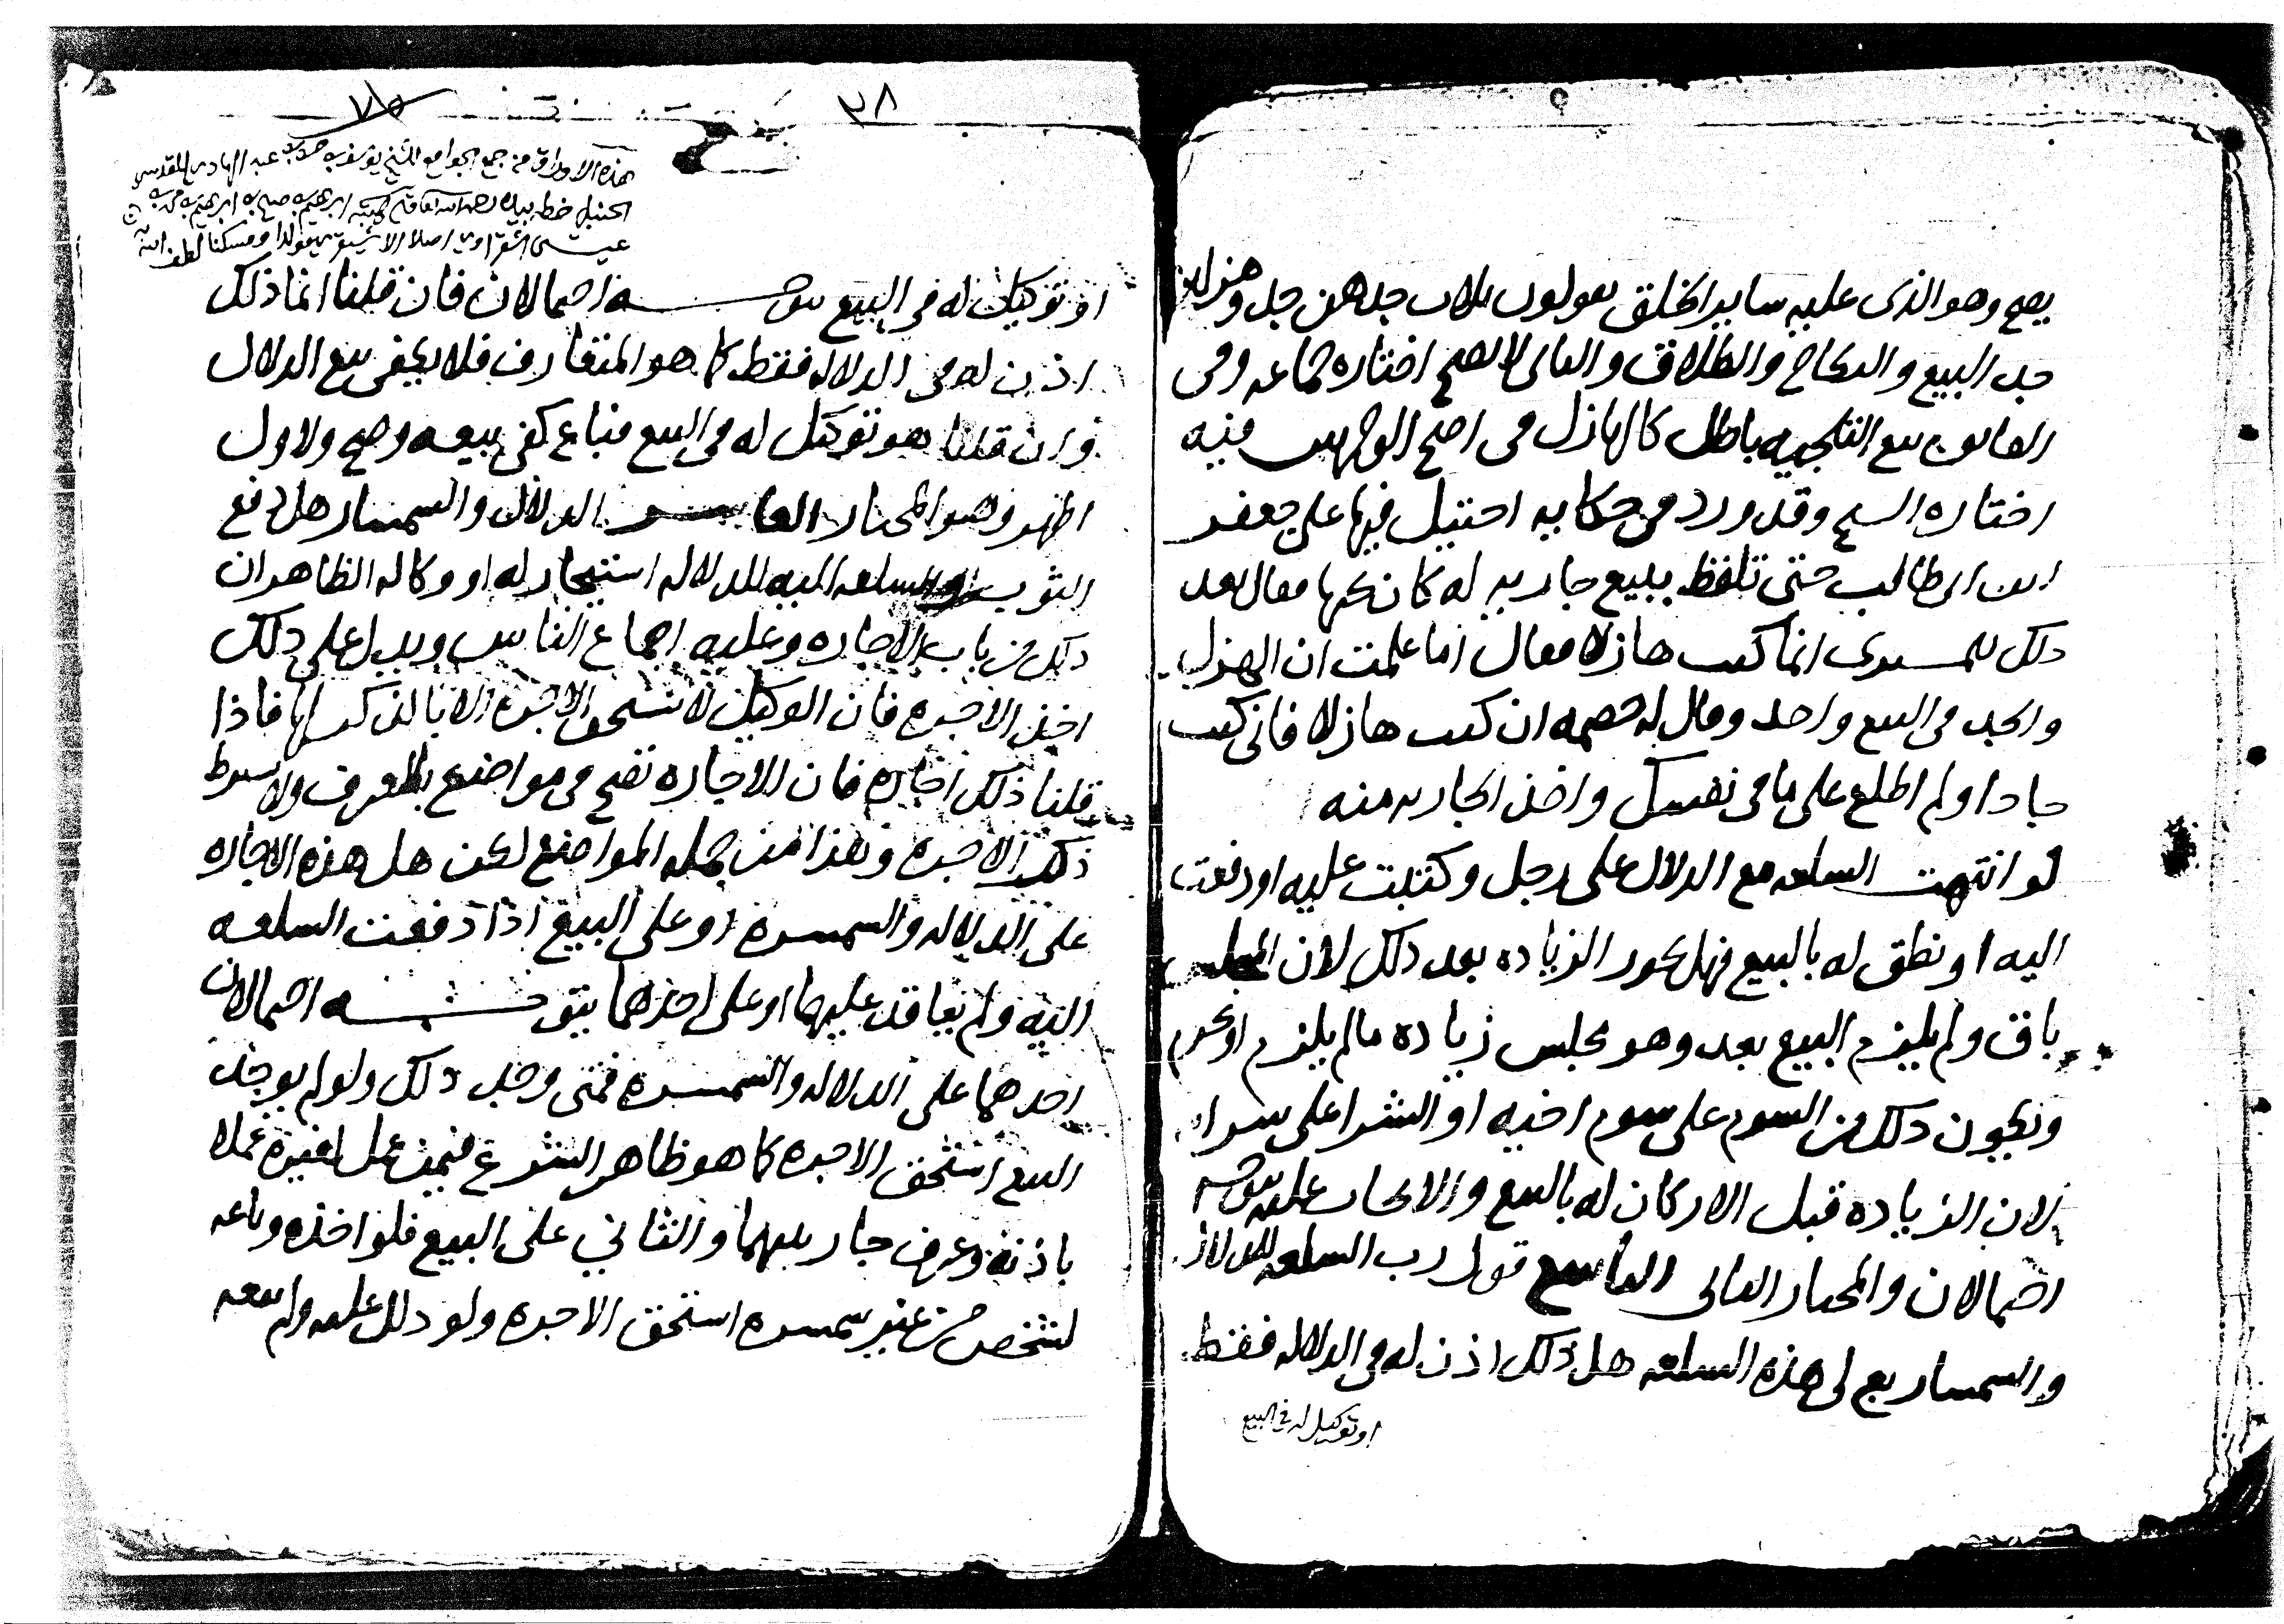 يصح وهو الذي عليه ساير الخلق يقولون ثلاث جدهن جد وهزلهن
جد البيع والنكاح والطلاق والثاني لا يصح اختاره جماعه وفي
الفانون بيع التلجيه باطل كالهازل في اصح الوجهين فيه
اختاره الشيخ وقد ورد في حكايه احتيل فيها على جعفر
ابن ابي طالب حتى تلفظ ببيع جاريه له كان يحبها فقال بعد
ذلك للمشتري انما كنت هازلا فقال اما علمت ان الهزل
والجد في البيع واحد وقال له خصمه ان كنت هازلا فاني كنت
جادا ولم اطلع على ما في نفسك واخذ الجاريه منه
لو انتهت السلعه مع الدلال على رجل وكتبت عليه او دفعت
اليه او نطق له بالبيع فهل يجوز الزياده بعد ذلك لان المجلس
باق ولم يلزم البيع بعد وهو مجلس زياده ما لم يلزم او يحرم
ويكون ذلك من السوم على سوم اخيه او الشرا على شراه
لان الزياده قبل الاركان له بالبيع والايجاب عليه يتوجه
احتمالان والمختار الثاني التاسع قول رب السلعه للدلال
والسمسار بع لي هذه السلعه هل ذلك اذن له في الدلاله فقط
او توكيل له في البيع
٣٨
٧٥
هذه الاوراق من جمع الجوامع للشيخ يوسف بن حسن بن عبد الهادي المقدسي
الحنبلي خطه بيده رحمه الله تعالى كتبه ابرهيم بن صالح بن ابرهيم بن محمد بن
عيسى اصلا الاشيقري مولدا ومسكنا لطف الله به
او توكيل له في البيع يتوجه احتمالان فان قلنا انما ذلك
اذن له في الدلاله فقط كما هو المتعارف فلا يكفي بيع الدلال
وان قلنا هو توكيل له في البيع فباع كفى بيعه وصح والاول
اظهر وهو المختار العاشر الدلال والسمسار هل دفع
الثوب والسلعه اليه للدلاله استيجار له او وكاله الظاهر ان
ذلك من باب الاجاره وعليه اجماع الناس ويدل على ذلك
اخذ الاجره فان الوكيل لا يستحق الاجره الا بالذكر لها فاذا
قلنا ذلك اجاره فان الاجاره تصح في مواضع بالعرف ولا يشترط
ذكر الاجره وهذا من جمله المواضع لكن هل هذه الاجاره
على الدلاله والسمسره او على البيع اذا دفعت السلعه
اليه ولم يعاقد عليهما او على احدهما يتوجه احتمالان
احدهما على الدلاله والسمسره فمتى وجد ذلك ولو لم يوجد
البيع استحق الاجره كما هو ظاهر الشرع فيمن عمل لغيره عملا
باذنه وعرف جار بينهما والثاني على البيع فلو اخذه وباعه
لشخص من غير سمسره استحق الاجره ولو دلل عليه ولم يبعه